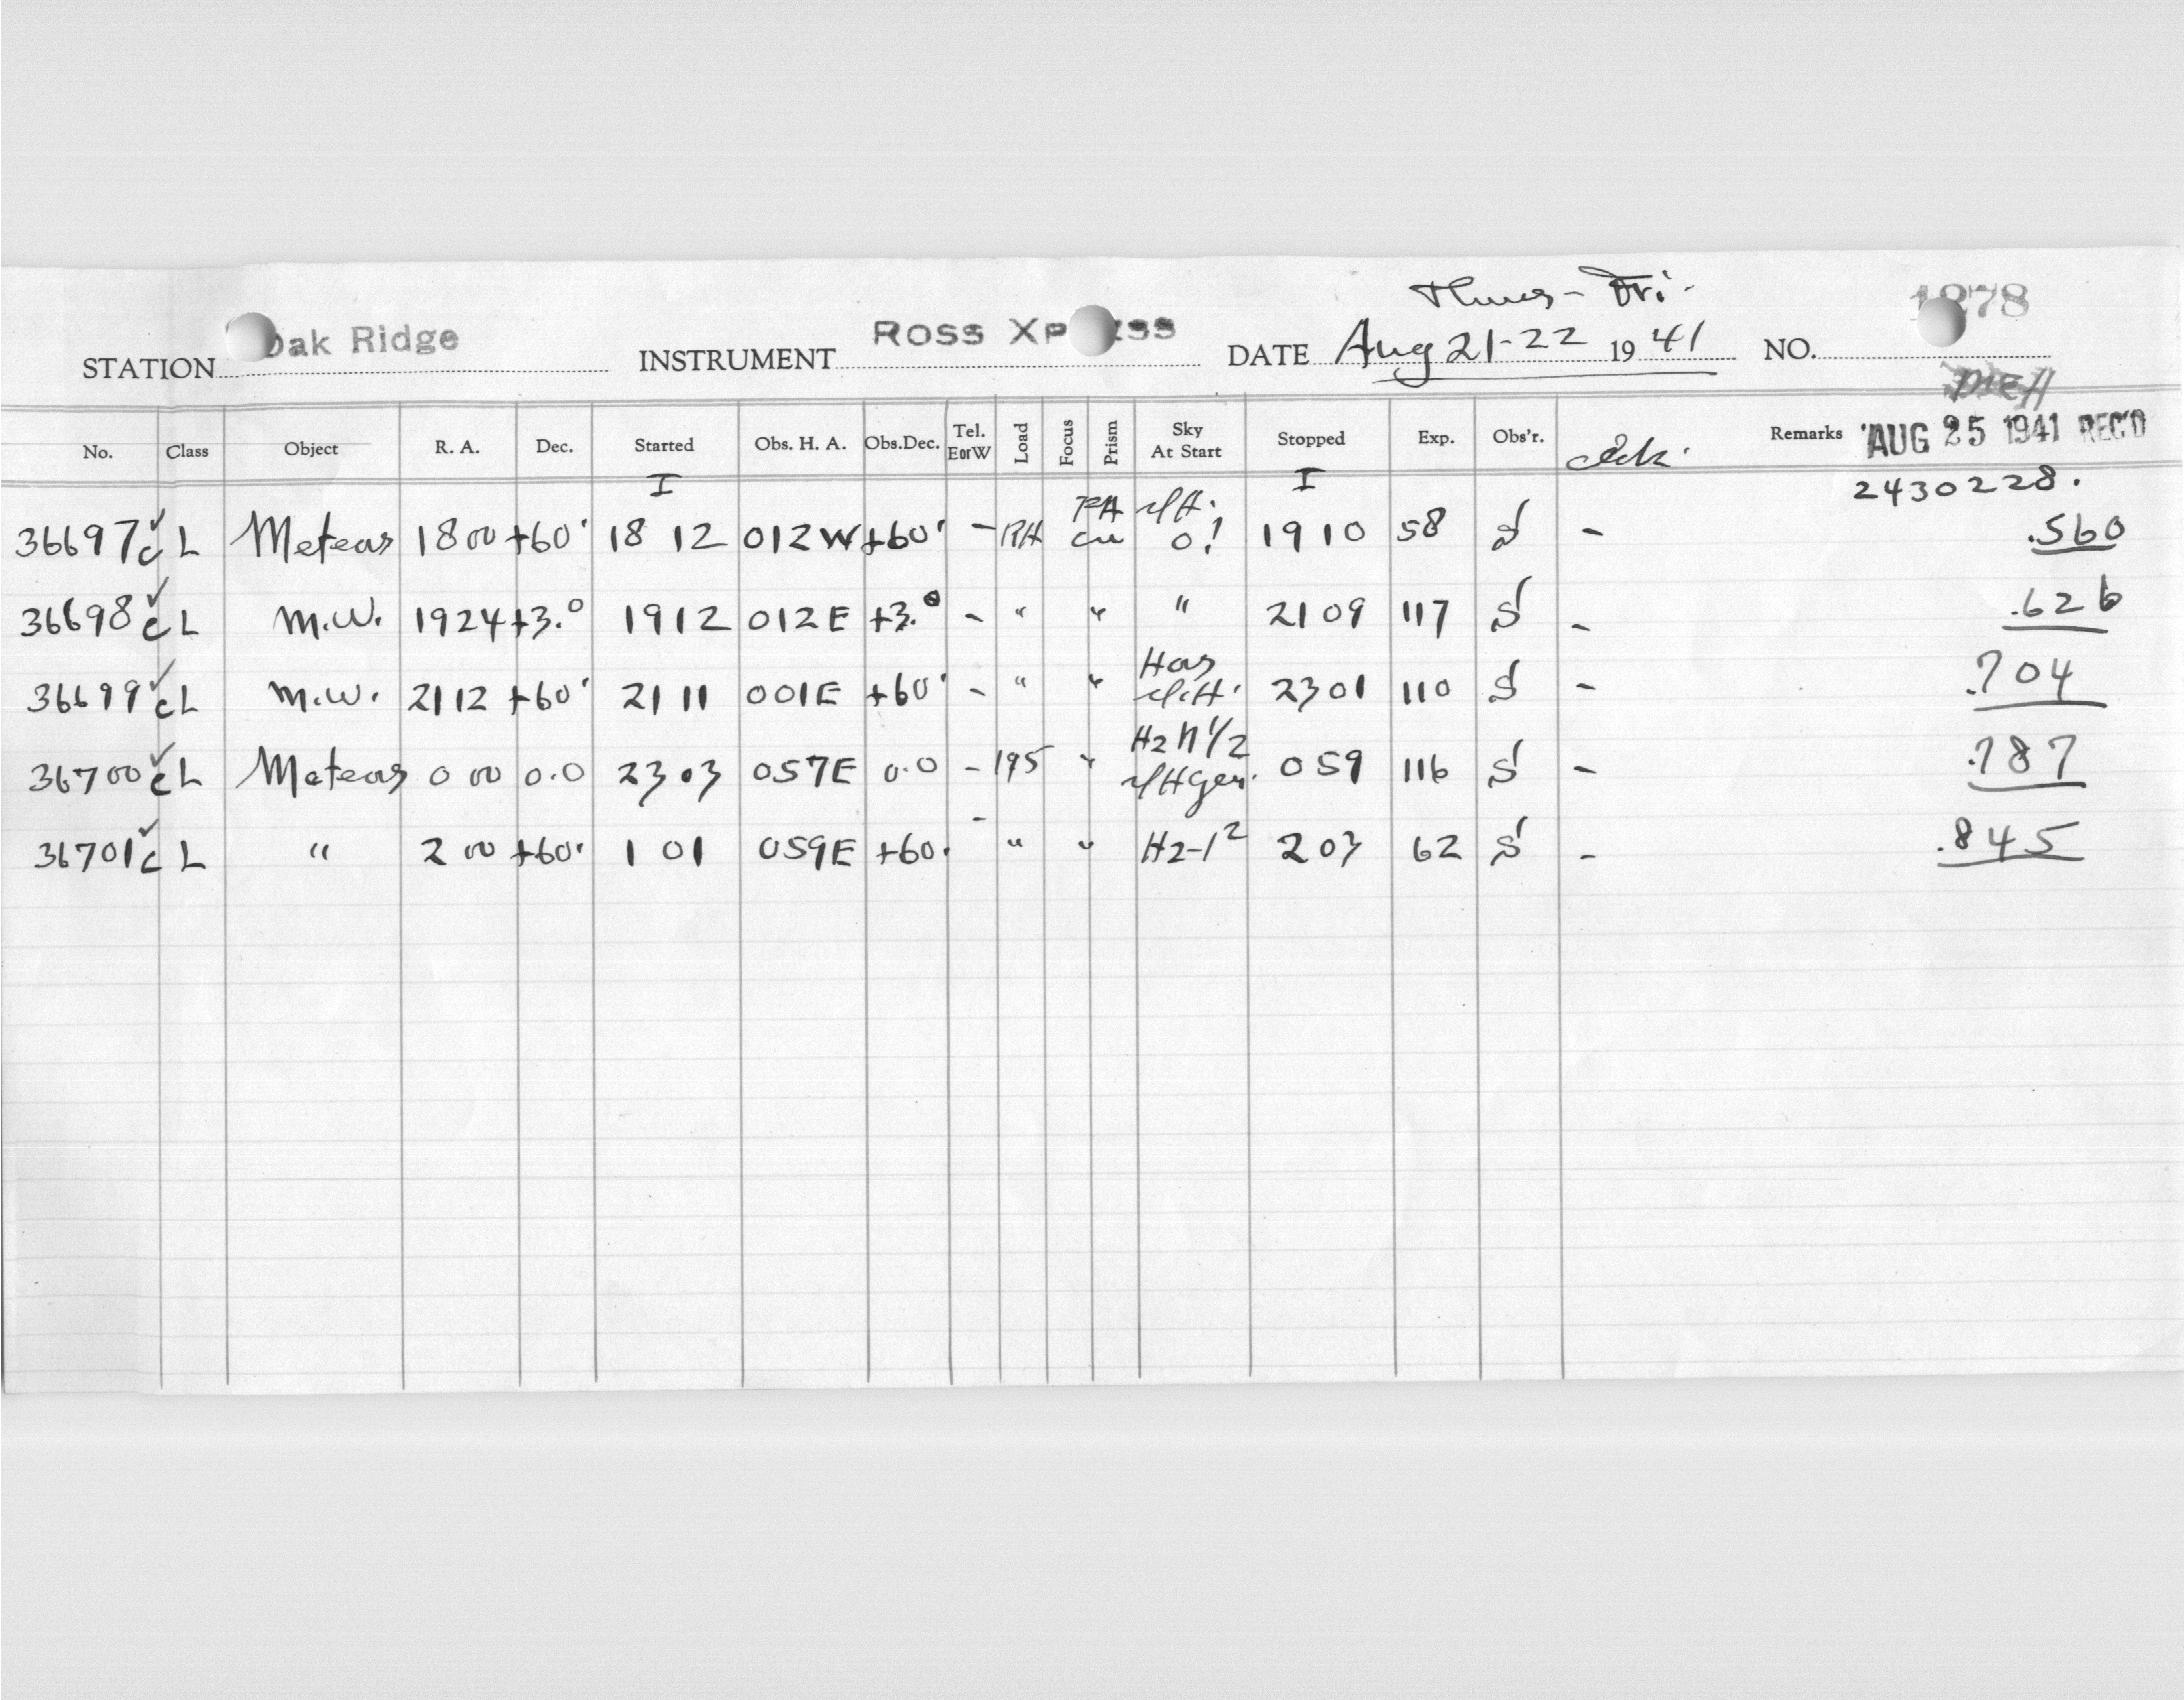 Thurs - Fri.
STATION Oak Ridge INSTRUMENT ROSS XPRESS DATE Aug 21-22 1941 NO. 1278
No. Class Object R. A. Dec. Started Obs. H. A. Obs.Dec. Tel. EorW Load Focus Prism Sky At Start Stopped Exp. Obs'r. Remarks AUG 25 1941 REC'D
I I 2430228.
36697 ✓ c L Meteors 18 00 +60° 18 12 0 12 W +60° - PA 19 10 58 S - .560
36698 ✓ c L M.W. 19 24 +3.° 19 12 0 12 E +3.° - " " " 21 09 117 S - .626
36699 ✓ c L M.W. 21 12 +60° 21 11 0 01 E +60° - " " 23 01 110 S - .704
36700 ✓ c L Meteors 0 00 0.0 23 03 0 57 E 0.0 - 195 " 0 59 116 S - .787
36701 ✓ c L " 2 00 +60° 1 01 0 59 E +60° - " " Hz-1² 2 03 62 S - .845